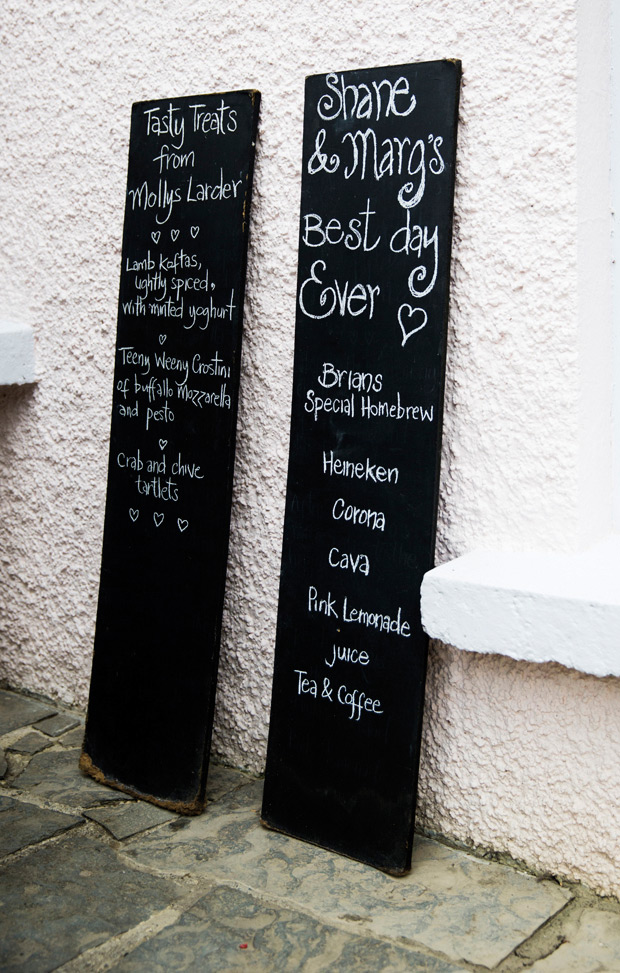 Tasty Treats
from
Mollys Larder
Lamb koftas,
lightly spiced,
with minted yoghurt
Teeny Weeny Crostini
of buffallo Mozzarella
and pesto
Crab and chive
tartlets
Shane
& Marg's
Best day
Ever
Brians
Special Homebrew
Heineken
Corona
Cava
Pink Lemonade
juice
Tea & Coffee